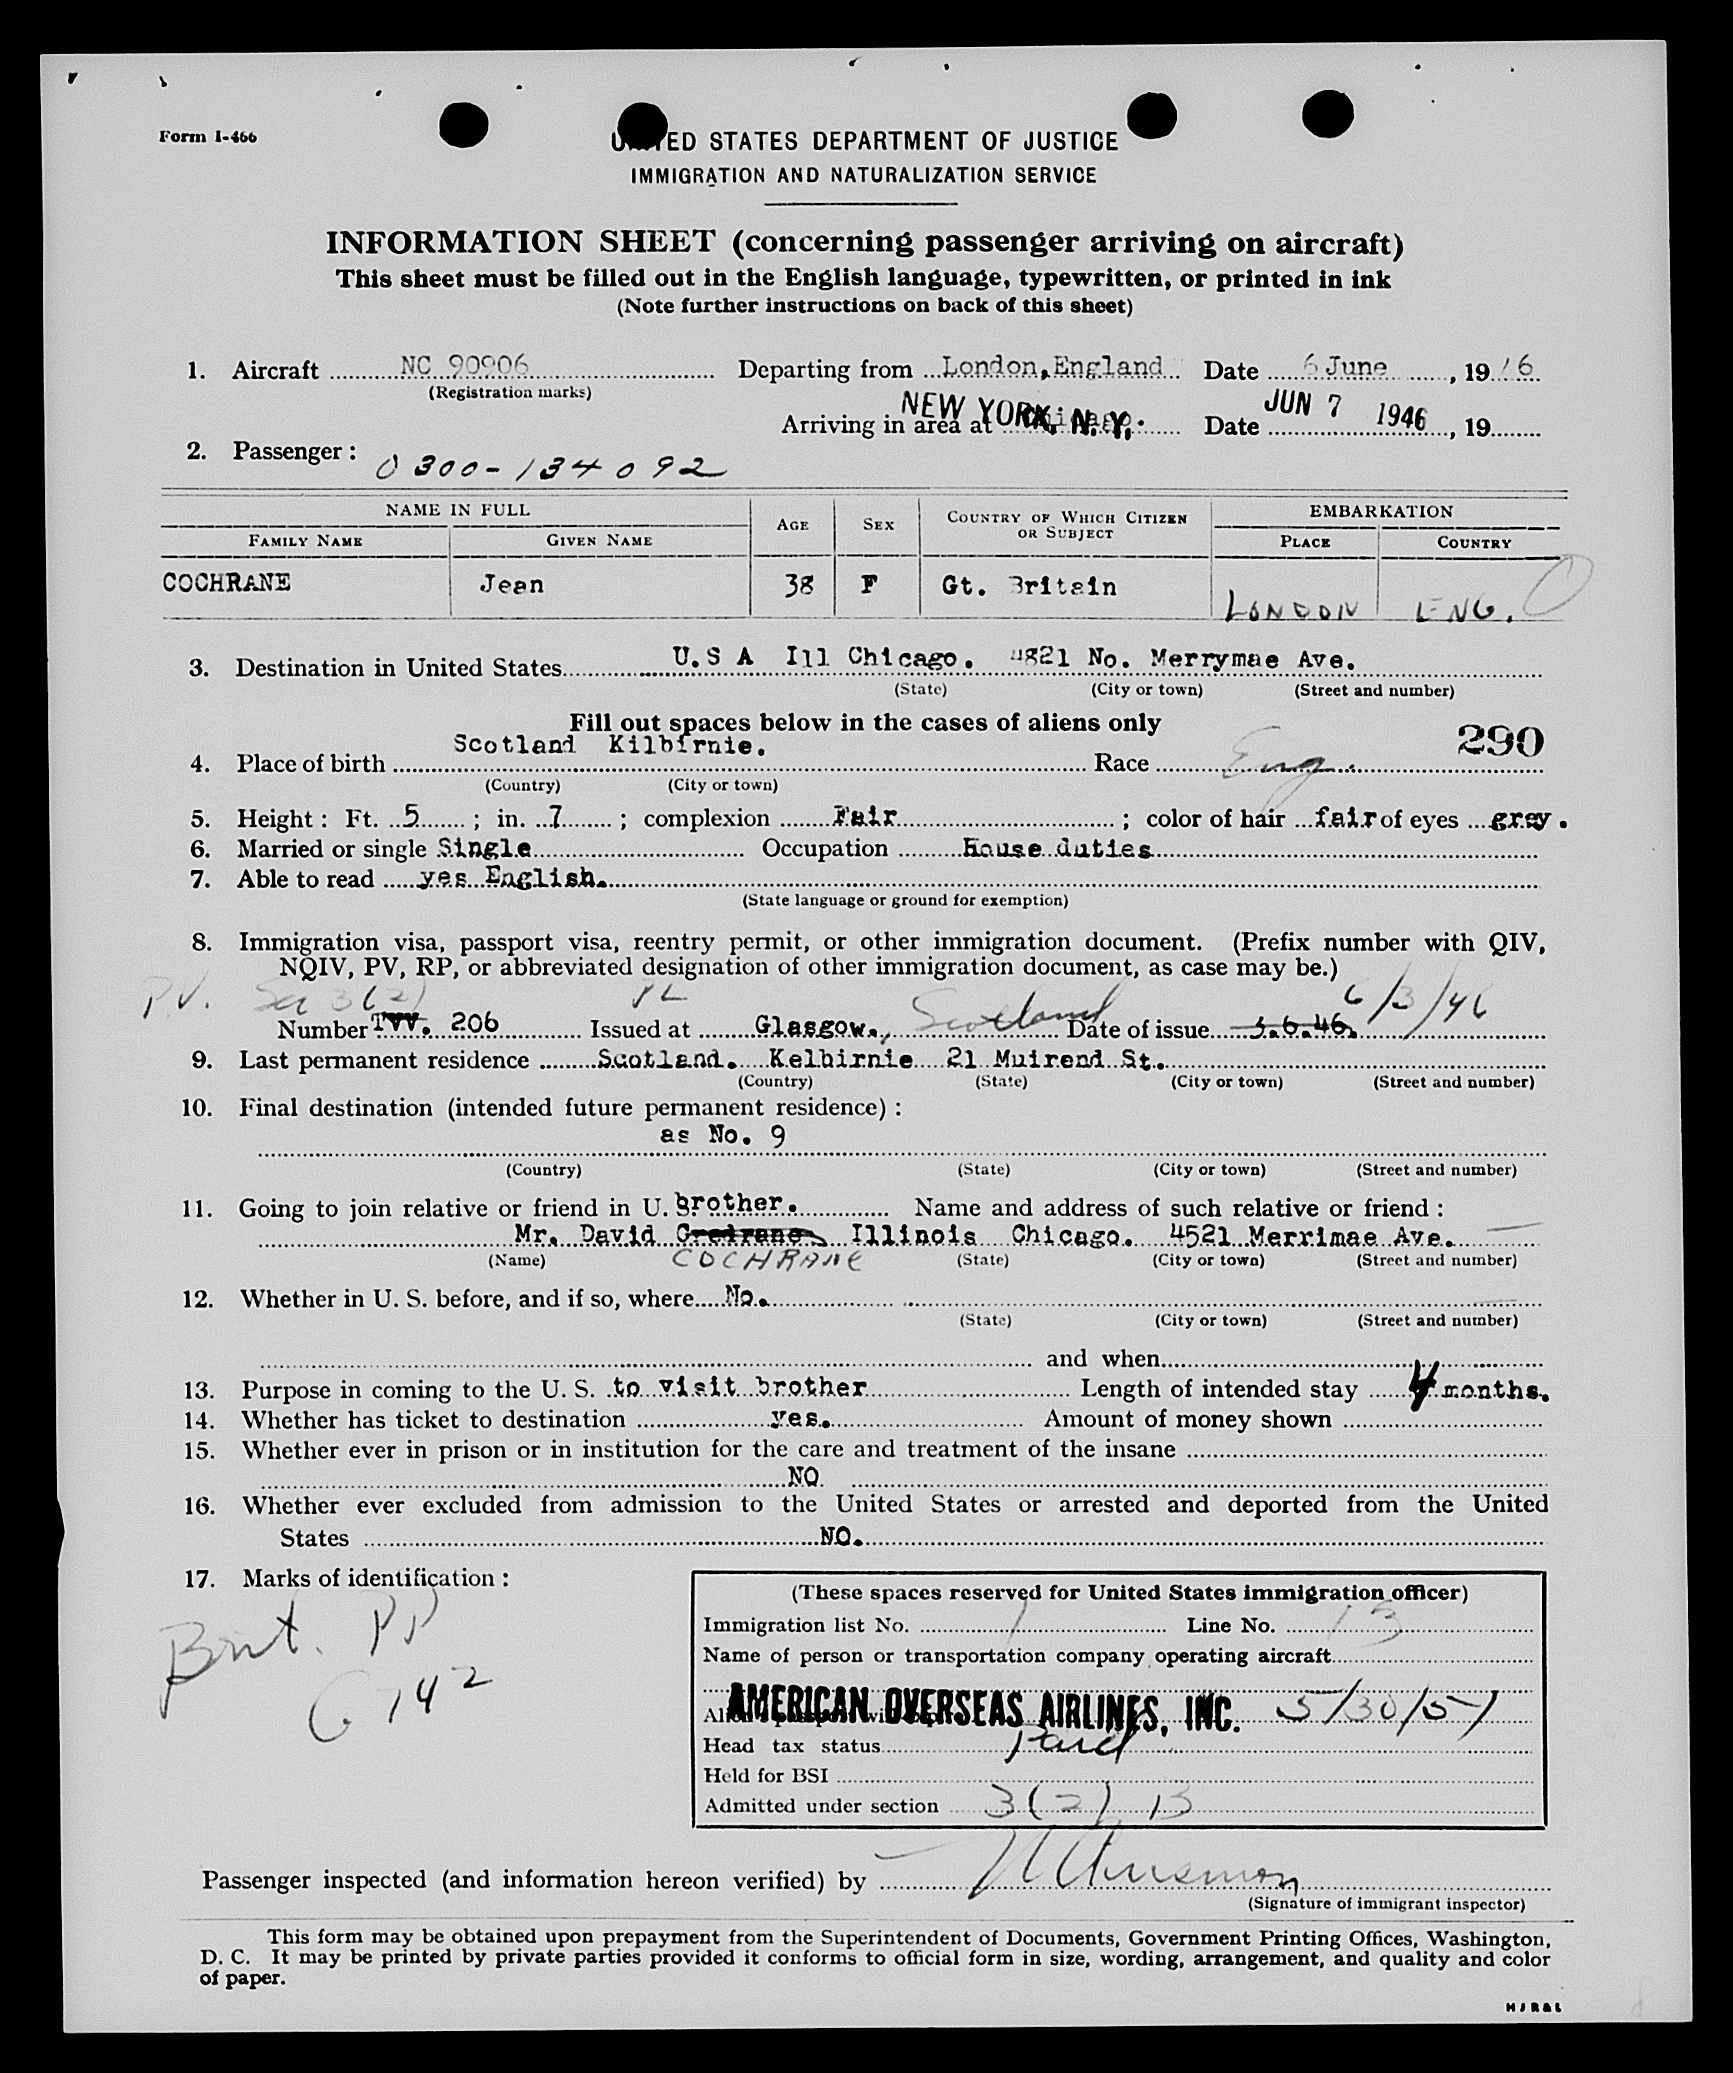 Form I-466
UNITED STATES DEPARTMENT OF JUSTICE
IMMIGRATION AND NATURALIZATION SERVICE
INFORMATION SHEET (concerning passenger arriving on aircraft)
This sheet must be filled out in the English language, typewritten, or printed in ink
(Note further instructions on back of this sheet)
1. Aircraft NC 90906 Departing from London, England Date 6 June, 19 46
(Registration marks)
Arriving in area at NEW YORK, N. Y. Date JUN 7 1946, 19
2. Passenger: 0300-134092
NAME IN FULL AGE SEX COUNTRY OF WHICH CITIZEN OR SUBJECT EMBARKATION
FAMILY NAME GIVEN NAME PLACE COUNTRY
COCHRANE Jean 38 F Gt. Britain LONDON ENG.
3. Destination in United States U.S A Ill Chicago. 4821 No. Merrymae Ave.
(State) (City or town) (Street and number)
Fill out spaces below in the cases of aliens only
290
4. Place of birth Scotland Kilbirnie. Race Eng.
(Country) (City or town)
5. Height: Ft. 5; in. 7; complexion Fair; color of hair fair of eyes grey.
6. Married or single Single Occupation House duties
7. Able to read yes English.
(State language or ground for exemption)
8. Immigration visa, passport visa, reentry permit, or other immigration document. (Prefix number with QIV,
NQIV, PV, RP, or abbreviated designation of other immigration document, as case may be.)
P.V. Sec 3(2) PL 6/3/46
Number TVV. 206 Issued at Glasgow., Scotland Date of issue 3.6.46.
9. Last permanent residence Scotland. Kelbirnie 21 Muirend St.
(Country) (State) (City or town) (Street and number)
10. Final destination (intended future permanent residence):
as No. 9
(Country) (State) (City or town) (Street and number)
11. Going to join relative or friend in U. S. brother. Name and address of such relative or friend:
Mr. David Illinois Chicago. 4521 Merrimae Ave.
(Name) COCHRANE (State) (City or town) (Street and number)
12. Whether in U. S. before, and if so, where No.
(State) (City or town) (Street and number)
and when
13. Purpose in coming to the U. S. to visit brother Length of intended stay 4 months.
14. Whether has ticket to destination yes. Amount of money shown
15. Whether ever in prison or in institution for the care and treatment of the insane
NO
16. Whether ever excluded from admission to the United States or arrested and deported from the United
States NO.
17. Marks of identification:
Brit. PP
C 742
(These spaces reserved for United States immigration officer)
Immigration list No. 1 Line No. 13
Name of person or transportation company operating aircraft
AMERICAN OVERSEAS AIRLINES, INC. 5/30/51
Head tax status Paid
Held for BSI
Admitted under section 3(2) B
Passenger inspected (and information hereon verified) by
(Signature of immigrant inspector)
This form may be obtained upon prepayment from the Superintendent of Documents, Government Printing Offices, Washington,
D. C. It may be printed by private parties provided it conforms to official form in size, wording, arrangement, and quality and color
of paper.